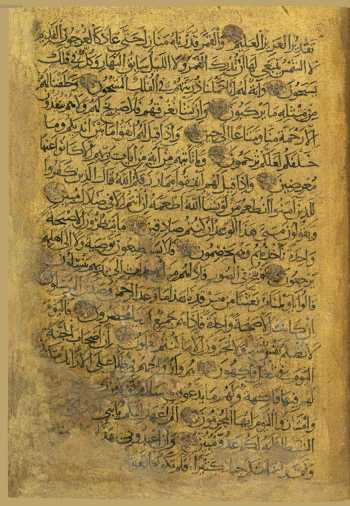 تقدير العزيز العليم والقمر قدرناه منازل حتى عاد كالعرجون القديم
لا الشمس ينبغي لها ان تدرك القمر ولا الليل سابق النهار وكل في فلك
يسبحون وآية لهم انا حملنا ذريتهم في الفلك المشحون وخلقنا لهم
من مثله ما يركبون وان نشأ نغرقهم فلا صريخ لهم ولا هم ينقذون
الا رحمة منا ومتاعا الى حين واذا قيل لهم اتقوا ما بين ايديكم وما
خلفكم لعلكم ترحمون وما تأتيهم من آية من آيات ربهم الا كانوا عنها
معرضين واذا قيل لهم انفقوا مما رزقكم الله قال الذين كفروا
للذين آمنوا انطعم من لو يشاء الله اطعمه ان انتم الا في ضلال مبين
ويقولون متى هذا الوعد ان كنتم صادقين ما ينظرون الا صيحة
واحدة تأخذهم وهم يخصمون فلا يستطيعون توصية ولا الى اهلهم
يرجعون ونفخ في الصور فاذا هم من الاجداث الى ربهم ينسلون
قالوا يا ويلنا من بعثنا من مرقدنا هذا ما وعد الرحمن وصدق المرسلون
ان كانت الا صيحة واحدة فاذا هم جميع لدينا محضرون فاليوم
لا تظلم نفس شيئا ولا تجزون الا ما كنتم تعملون ان اصحاب الجنة
اليوم في شغل فاكهون هم وازواجهم في ظلال على الارائك
لهم فيها فاكهة ولهم ما يدعون سلام
وامتازوا اليوم ايها المجرمون الم اعهد اليكم يا بني
الشيطان انه لكم عدو مبين وان اعبدوني هذا
ولقد اضل منكم جبلا كثيرا افلم تكونوا تعقلون